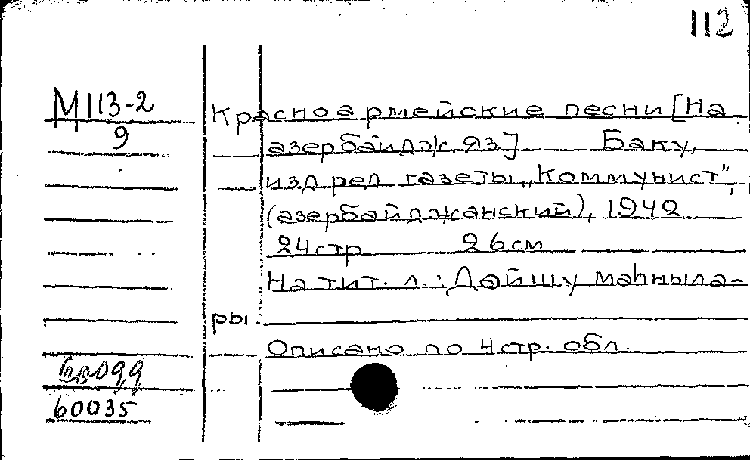 112
М113-2
9
Красноармейские песни [На
азербайдж. яз]. Баку,
изд. ред. газеты „Коммунист",
(азербайджанский), 1942
24 стр 26 см
На тит. л.: Дөйшу маһныла-
ры.
Описано по 4 стр. обл.
60035